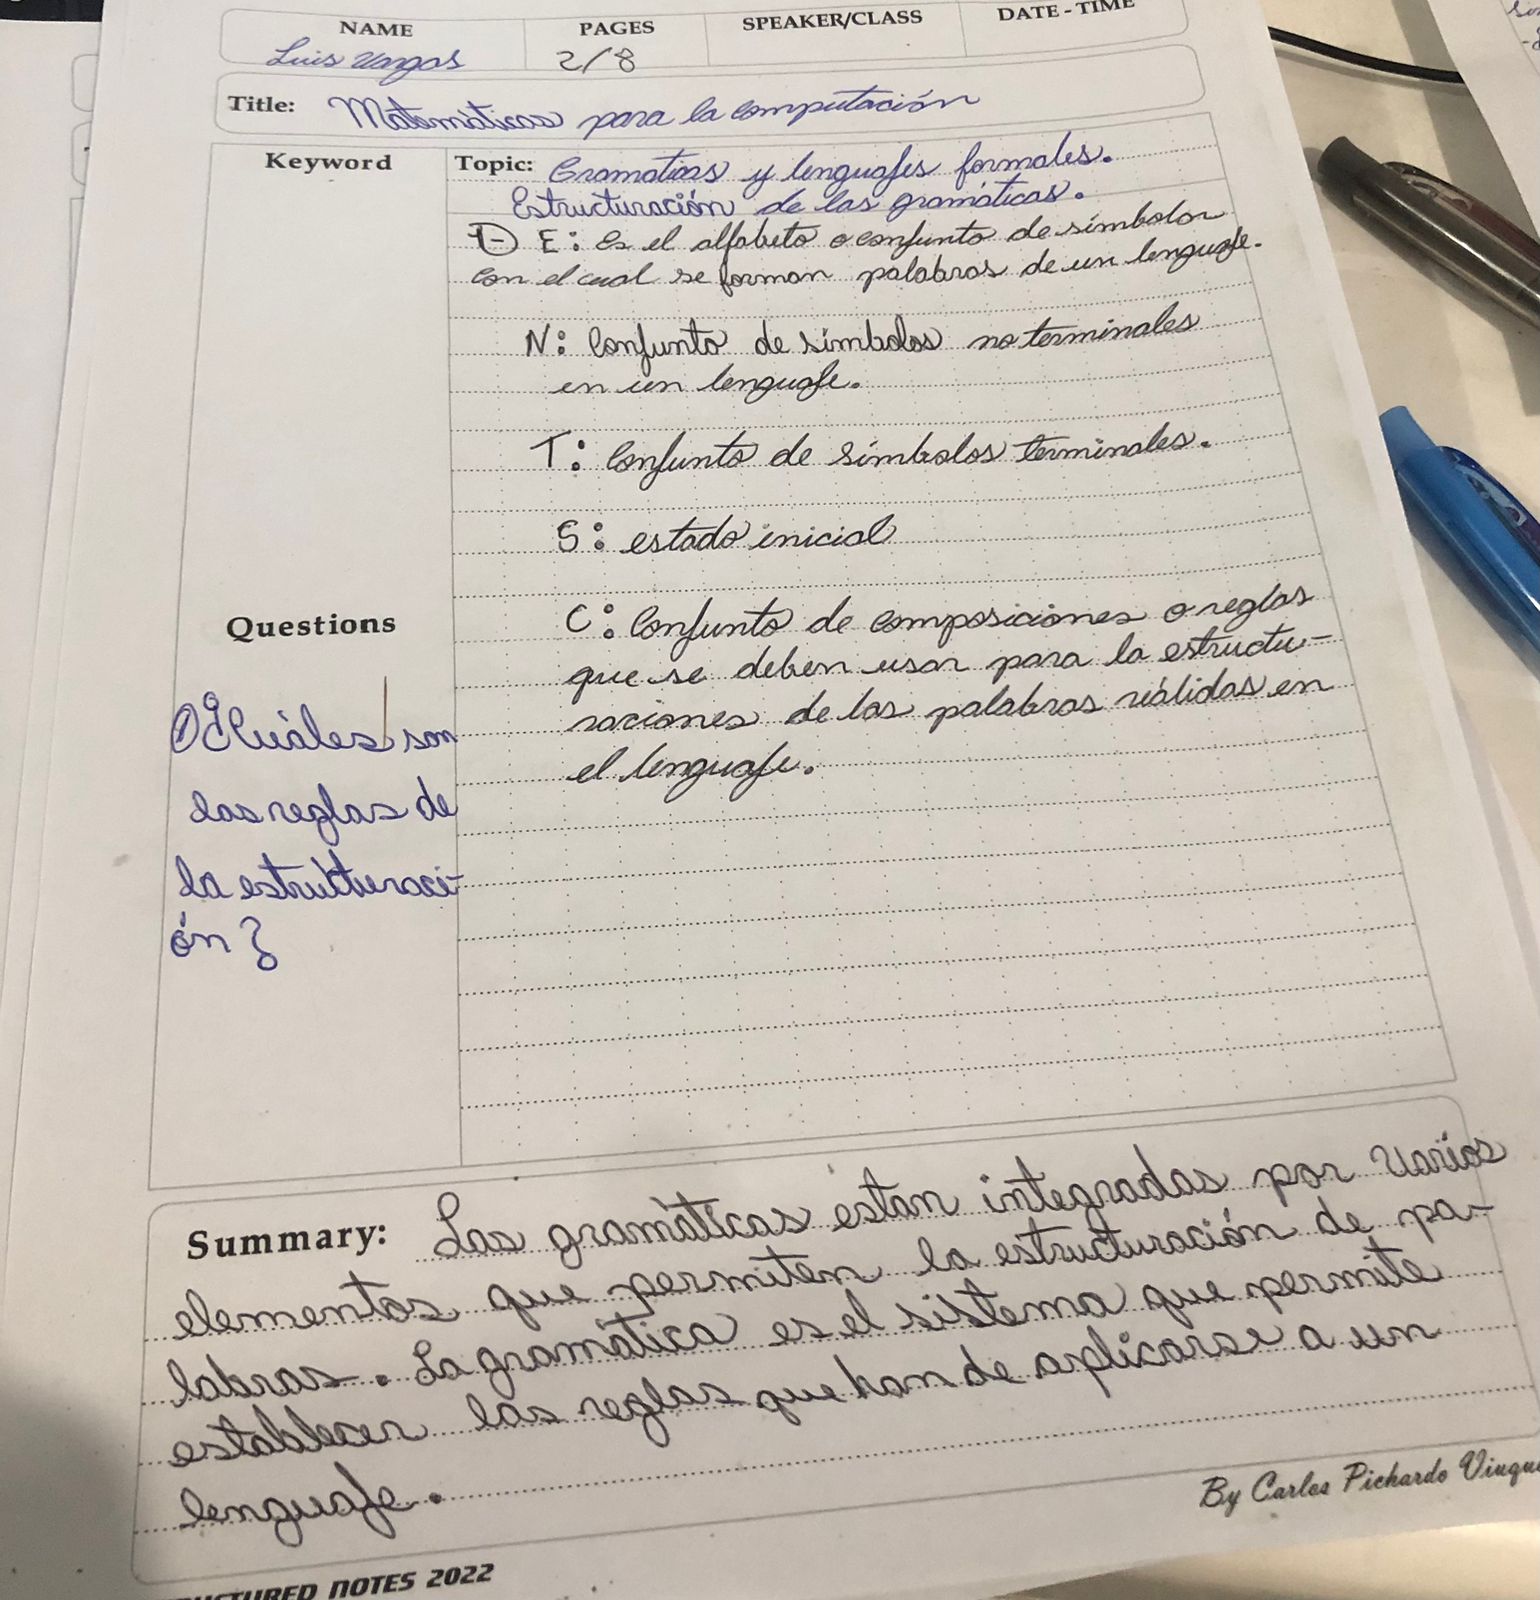 NAME PAGES SPEAKER/CLASS DATE - TIME
Luis Vargas 2/8
Title: Matemáticas para la computación
Keyword
Topic: Gramaticas y lenguajes formales.
Estructuración de las gramáticas.
1- E: es el alfabeto o conjunto de símbolos
con el cual se forman palabras de un lenguaje.
N: Conjunto de símbolos no terminales
en un lenguaje.
T: Conjunto de símbolos terminales.
S: estado inicial
C: Conjunto de composiciones o reglas
que se deben usar para la estructu-
raciones de las palabras válidas en
el lenguaje.
Questions
1) ¿Cuáles son
las reglas de
la estructuraci-
ón?
Summary: Las gramáticas estan integradas por varios
elementos que permiten la estructuración de pa-
labras. La gramática es el sistema que permite
establecer las reglas que han de aplicarse a un
lenguaje.
By Carlos Pichardo
NOTES 2022